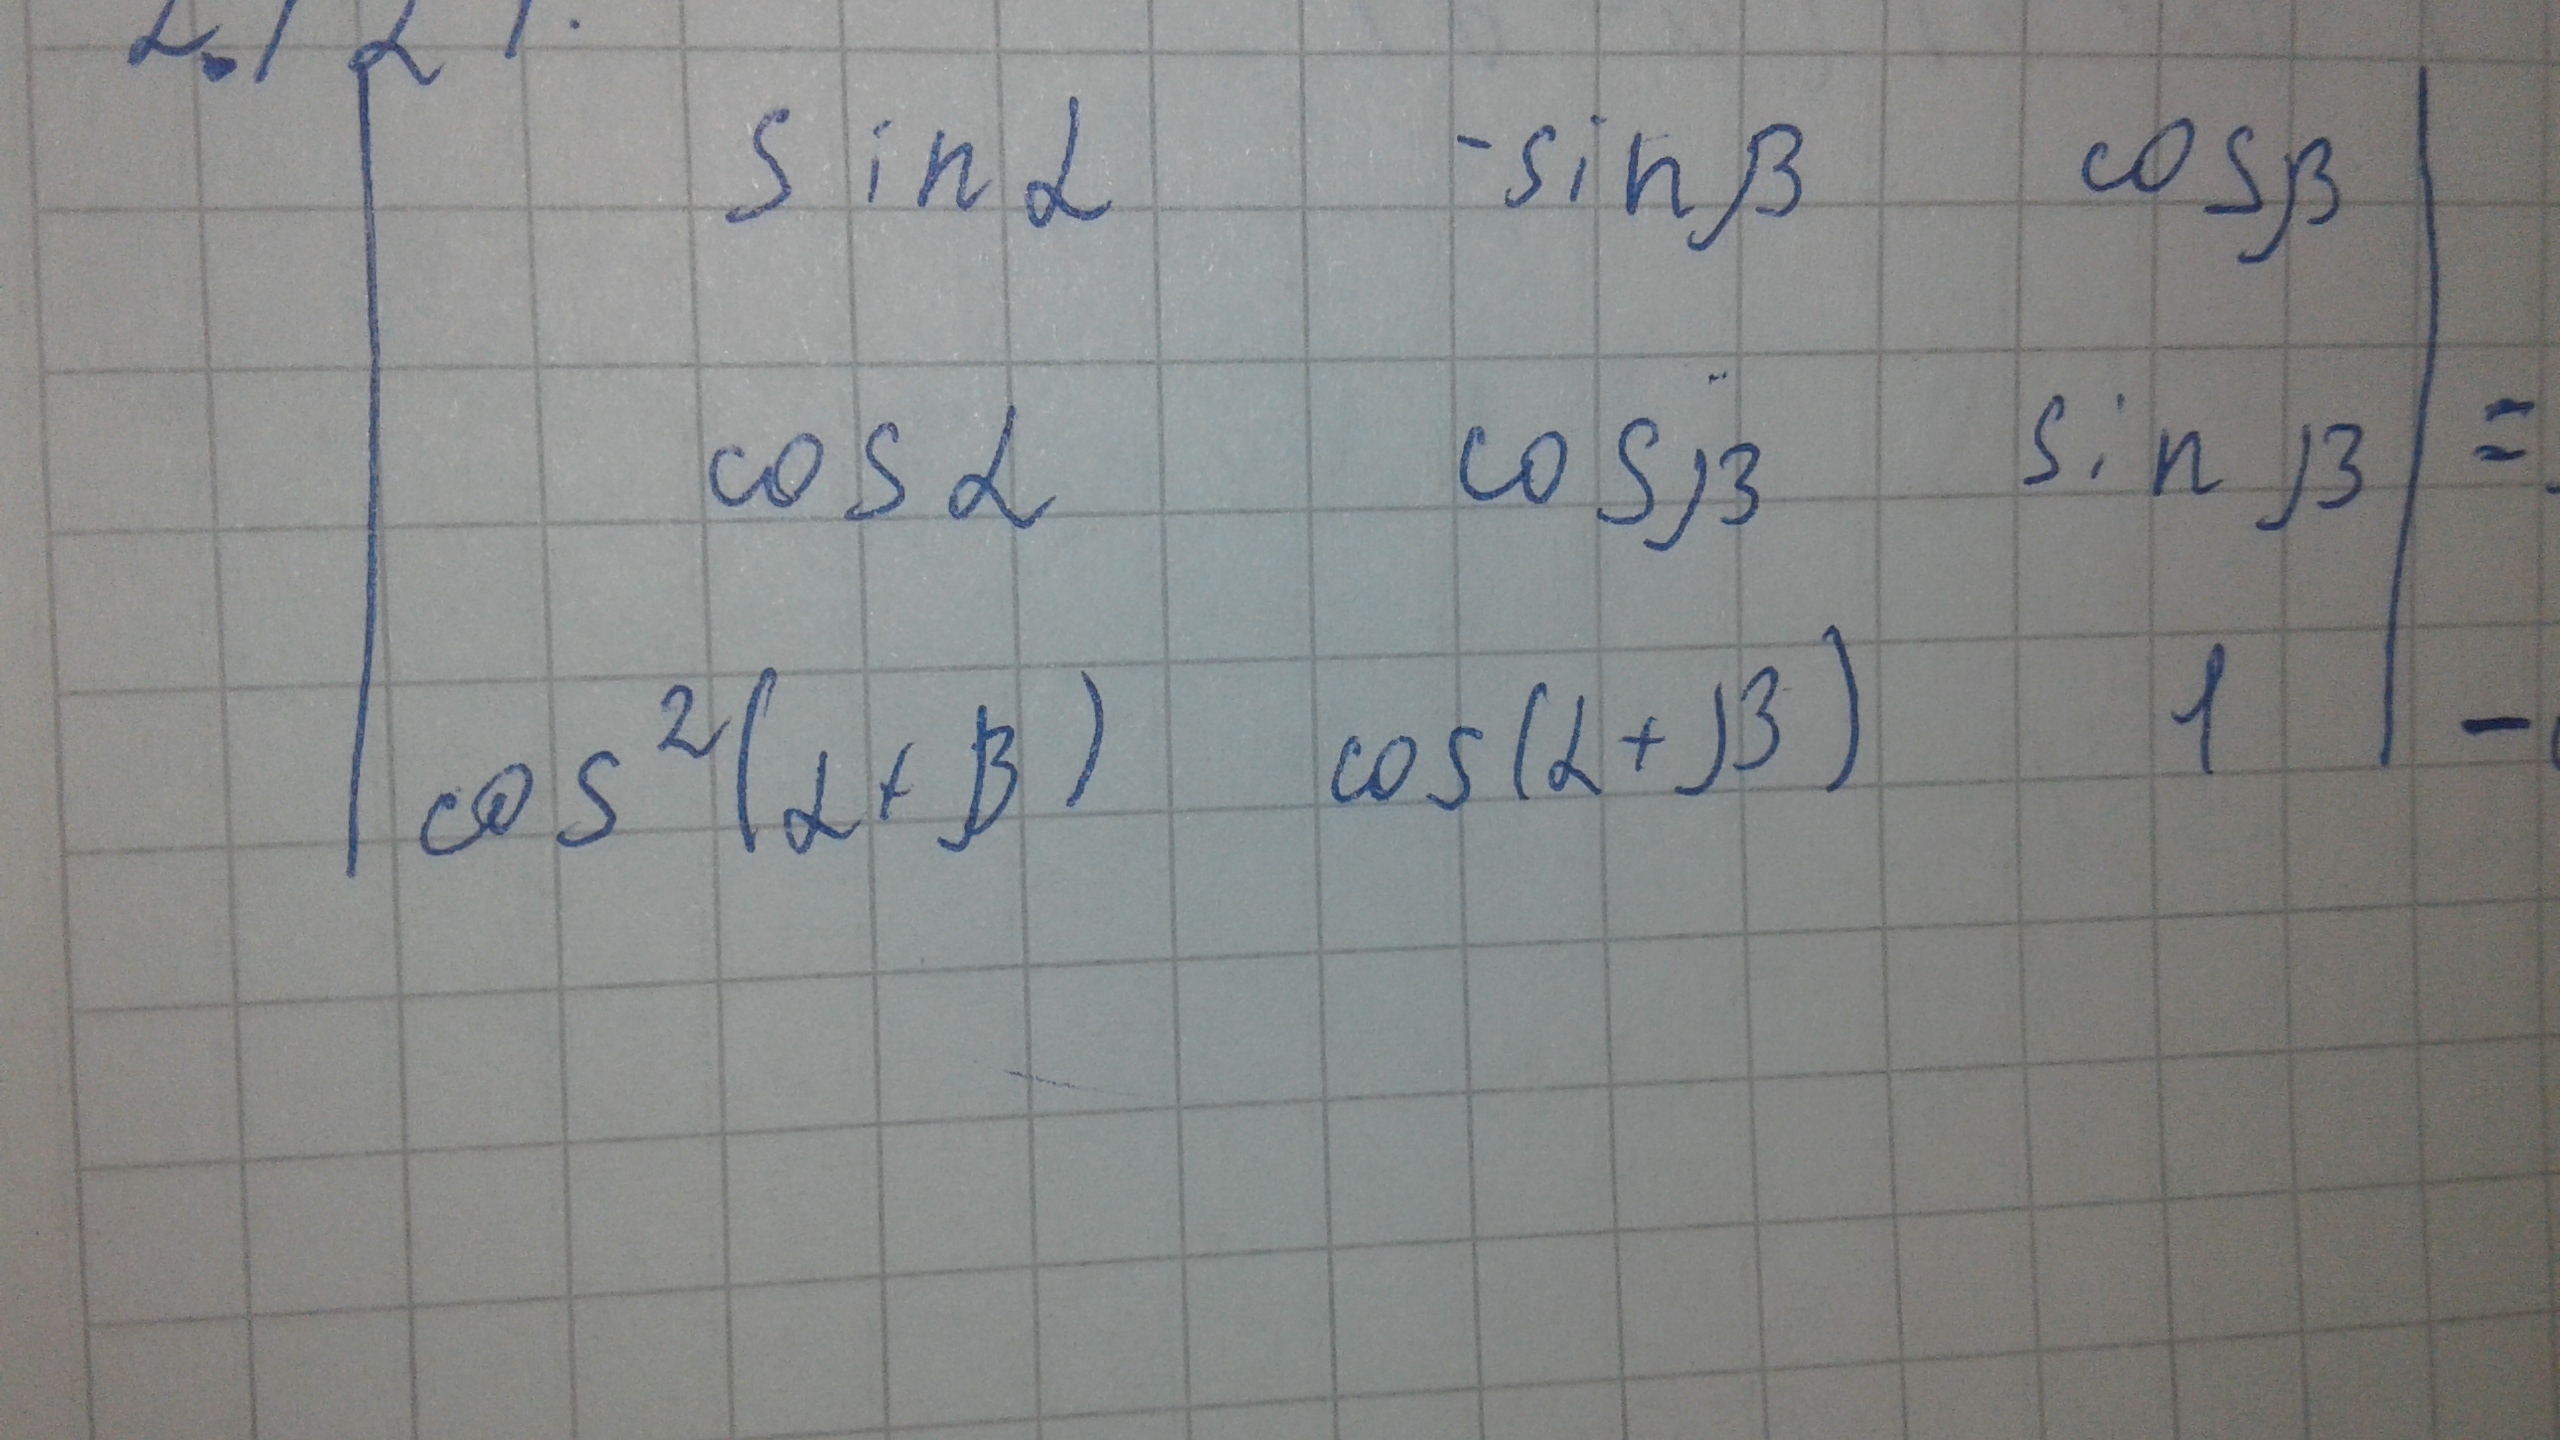 sin α -sin β cos β
cos α cos β sin β =
cos²(α+β) cos(α+β) 1 -